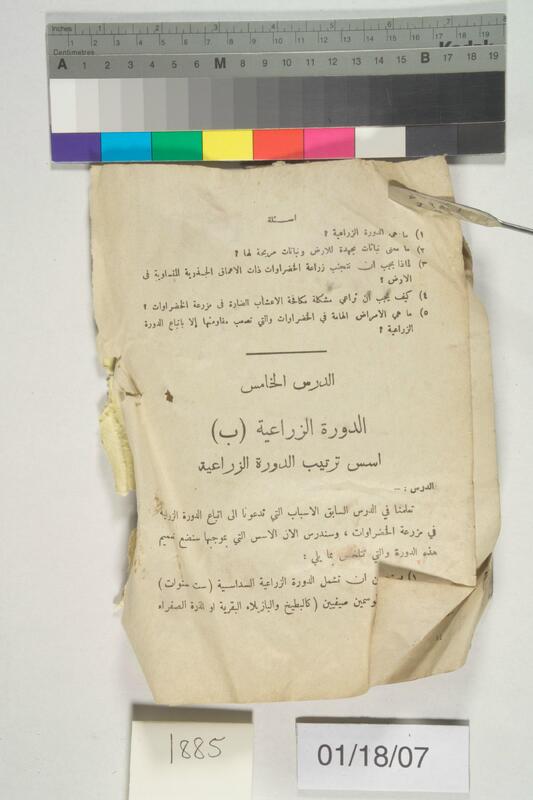 Inches 1 2 3 4 5 6 7 8
Centimetres 1 2 3 4 5 6 7 8 9 10 11 12 13 14 15 16 17 18 19
Kodak
A 1 2 3 4 5 6 M 8 9 10 11 12 13 14 15 B 17 18 19
اسئلة
١) ما هي الدورة الزراعية ؟
٢) ما معنى نباتات مجهدة للارض ونباتات مريحة لها ؟
٣) لماذا يجب ان نتجنب زراعة الخضراوات ذات الاعماق الجذرية المتساوية في
الارض ؟
٤) كيف يجب ان تراعي مشكلة مكافحة الاعشاب الضارة في مزرعة الخضراوات ؟
٥) ما هي الامراض الهامة في الخضراوات والتي تصعب مقاومتها إلا باتباع الدورة
الزراعية ؟
الدرس الخامس
الدورة الزراعية (ب)
اسس ترتيب الدورة الزراعية
الدرس : —
تعلمنا في الدرس السابق الاسباب التي تدعونا الى اتباع الدورة الزراعية
في مزرعة الخضراوات ، وسندرس الان الاسس التي بموجبها سنضع تصميم
هذه الدورة والتي تتلخص بما يلي :
١) ان تشمل الدورة الزراعية السداسية (ست سنوات)
موسمين صيفيين (كالبطيخ والبازيلاء البقرية او الذرة الصفراء
1885
01/18/07